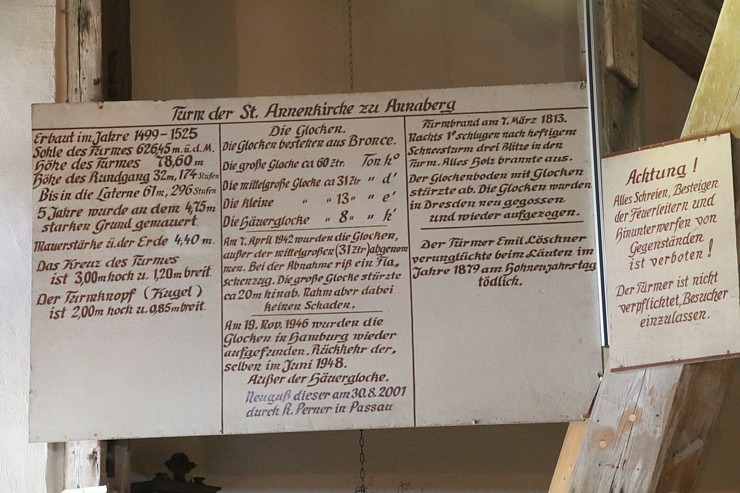 Turm der St. Annenkirche zu Annaberg
Erbaut im Jahre 1499-1525
Sohle des Turmes 626,45 m.ü.d.M.
Höhe des Turmes 78,60 m
Höhe des Rundgang 32m, 174 Stufen
Bis in die Laterne 61m, 296 Stufen
5 Jahre wurde an dem 4,75m
starken Grund gemauert.
Mauerstärke ü.der Erde 4,40 m.
Das Kreuz des Turmes
ist 3,00m hoch u. 1,20m breit
Der Turmknopf (Kugel)
ist 2,00m hoch u. 0,85m breit
Die Glocken.
Die Glocken bestehen aus Bronce.
Die große Glocke ca 60 Ztr. Ton h°
Die mittelgroße Glocke ca 31 Ztr " d'
Die kleine " " 13 " " e'
Die Häuerglocke " 8 " " h'
Am 7. April 1942 wurden die Glocken,
außer der mittelgroßen (31 Ztr) abgenom
men. Bei der Abnahme riß ein Fla„
schenzug. Die große Glocke stürzte
ca 20m hinab. Nahm aber dabei
keinen Schaden.
Am 19. Nov. 1946 wurden die
Glocken in Hamburg wieder
aufgefunden. Rückkehr der„
selben im Juni 1948.
Außer der Häuerglocke.
Neuguß dieser am 30.8.2001
durch R. Perner in Passau
Turmbrand am 7. März 1813.
Nachts 1° schlugen nach heftigem
Schneesturm drei Blitze in den
Turm. Alles Holz brannte aus.
Der Glockenboden mit Glocken
stürzte ab. Die Glocken wurden
in Dresden neu gegossen
und wieder aufgezogen.
Der Türmer Emil Löschner
verunglückte beim Läuten im
Jahre 1879 am Hohneujahrstag
tödlich.
Achtung !
Alles Schreien, Besteigen
der Feuerleitern und
Hinunterwerfen von
Gegenständen
ist verboten !
Der Türmer ist nicht
verpflichtet, Besucher
einzulassen.